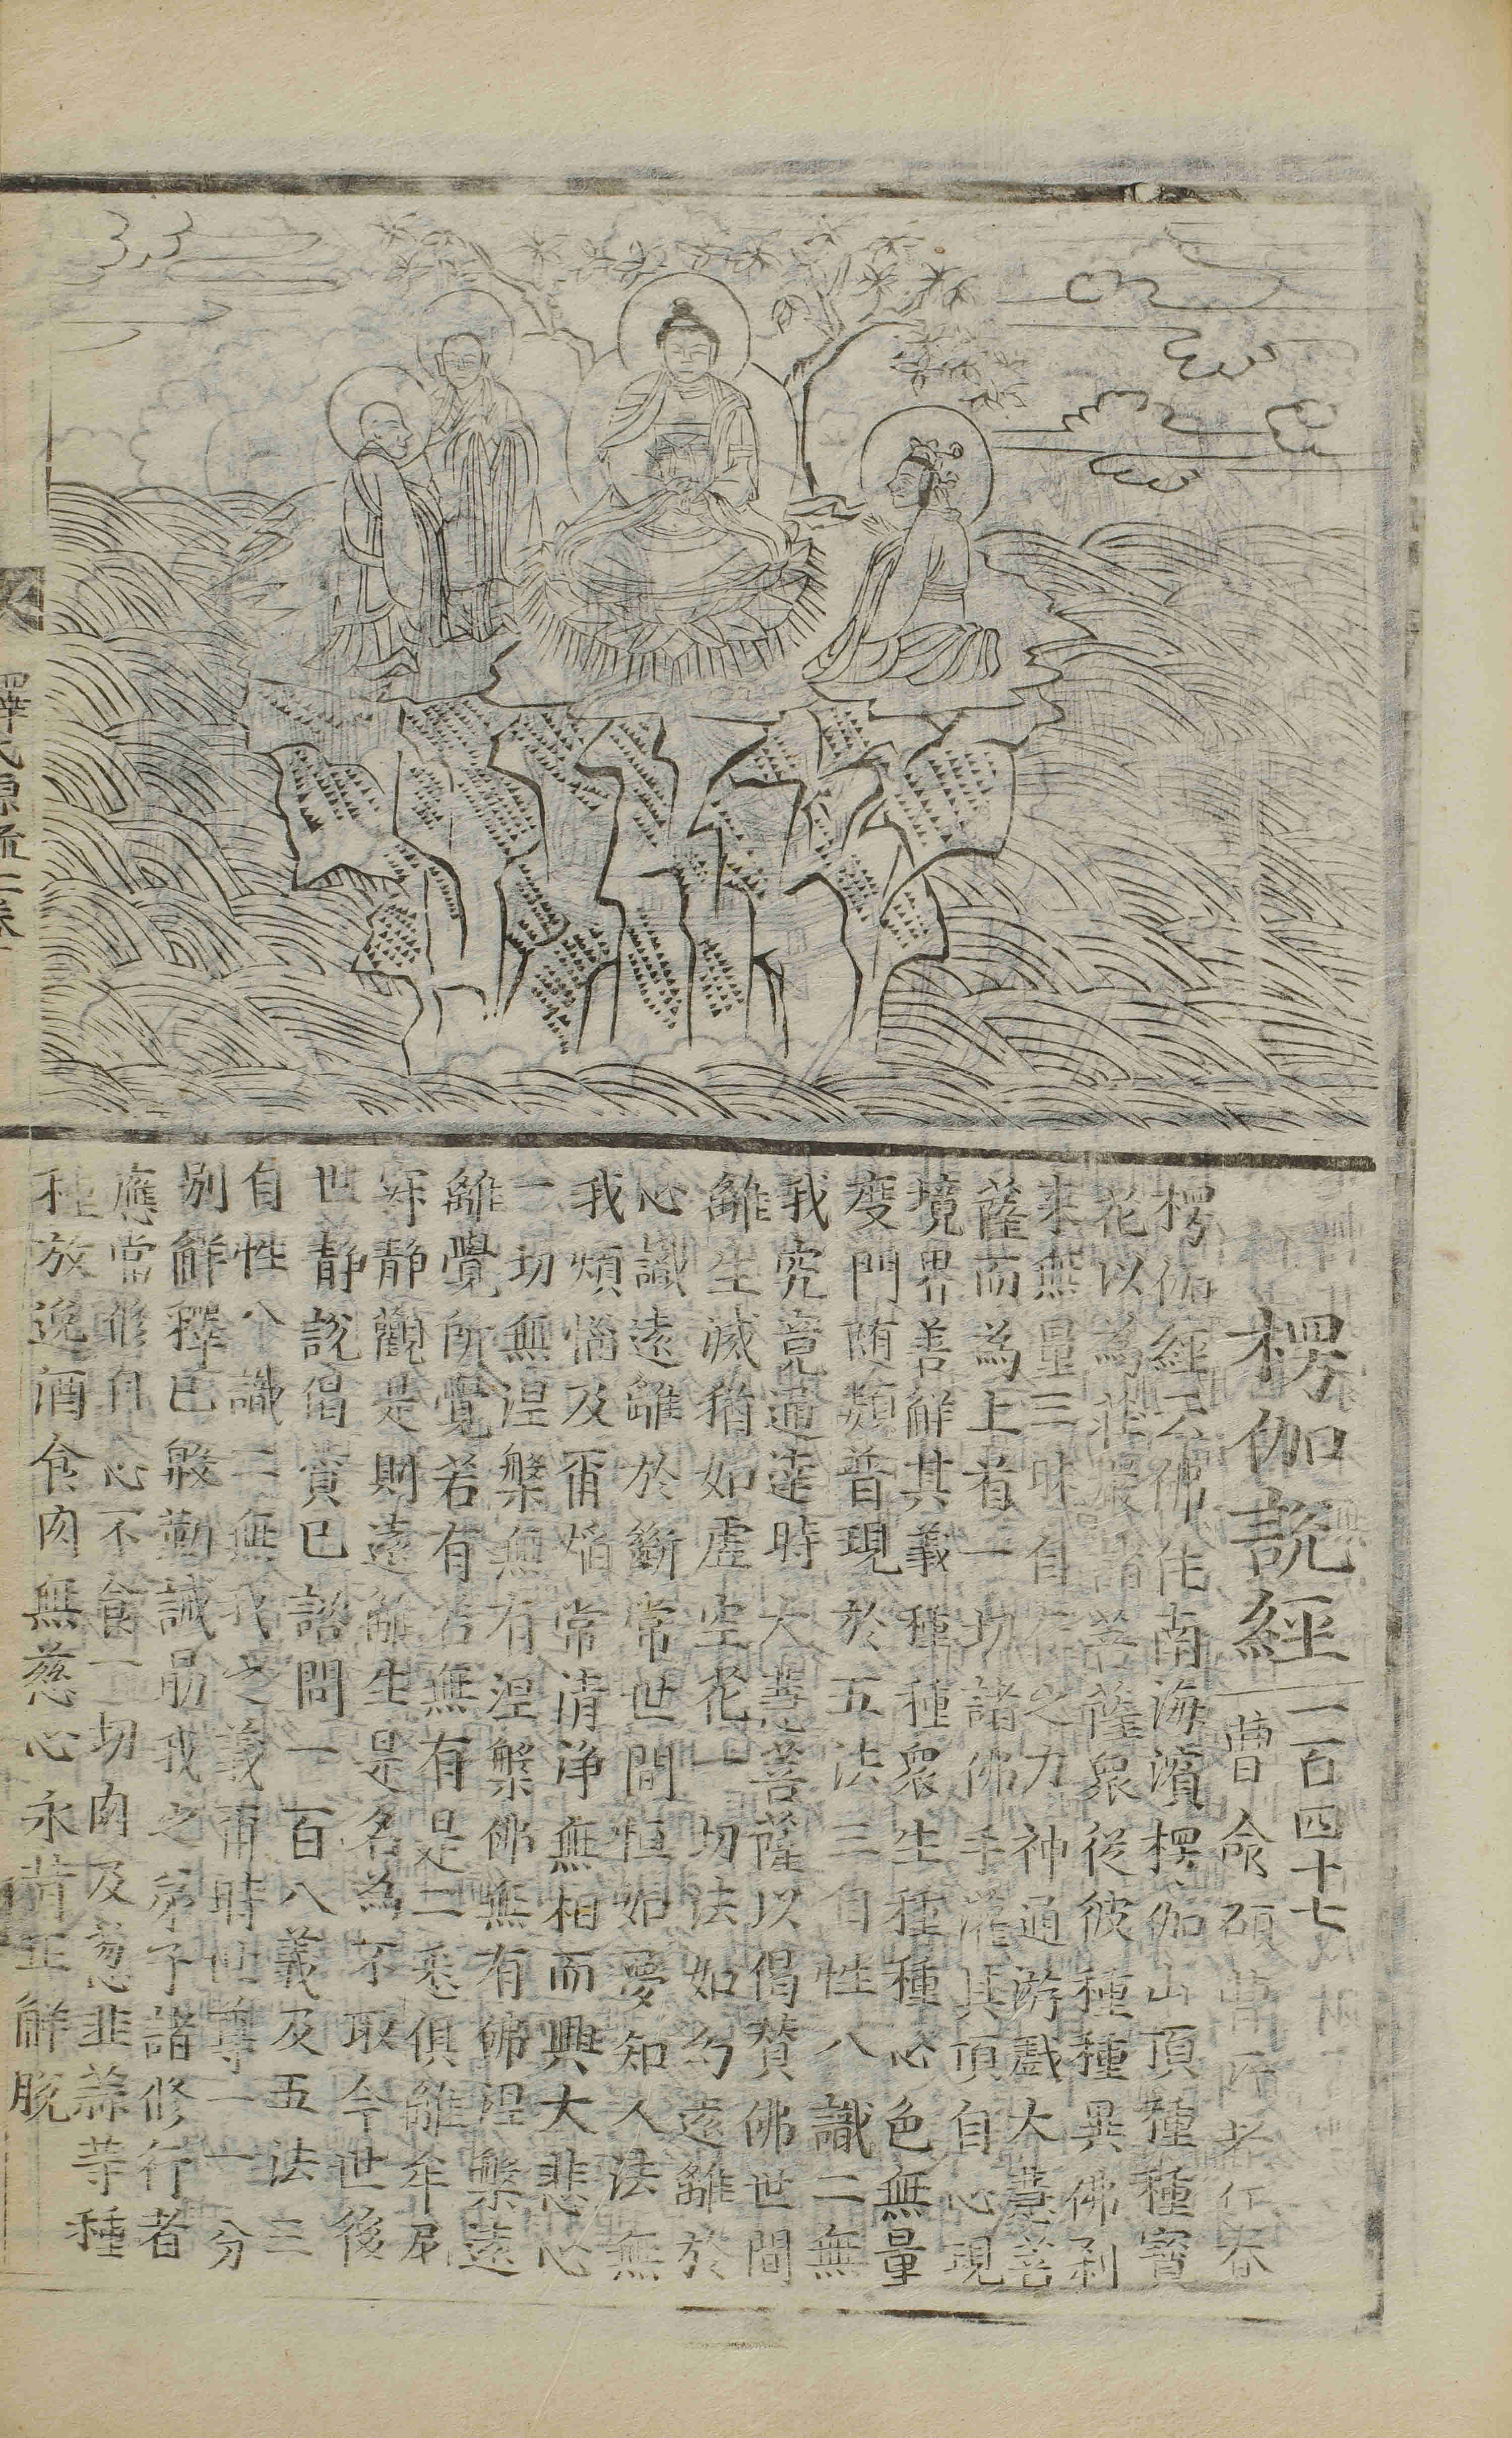 楞伽説經
一百四十七
曹俞碩曹
楞伽經云佛住南海濱楞伽山頂種種寶
花以為莊嚴諸菩薩衆從彼種種異佛刹
来無量三昧自在之力神通游戲大慧菩
薩而為上者一切諸佛手灌其頂自心現
境界善觧其義種種衆生種種心色無量
度門随類普現於五法三自性八識二無
我究竟通達時大慧菩薩以偈賛佛世間
離生滅猶如虚空花一切法如幻遠離於
心識遠離於斷常世間恒如夢知人法無
我煩惱及爾焰常清浄無相而興大悲心
一切無涅槃無有涅槃佛無有佛涅槃遠
離覺所覺若有若無有是二悉俱離牟尼
寂静觀是則遠離生是名為不取今世後
世静説偈賛已諮問一百八義及五法三
自性八識二無我之義爾時世尊一一分
别觧釋已殷勤誡勗我之弟子諸修行者
應常修自心不食一切肉及葱韮蒜等種
種放逸酒食肉無慈心永背正觧脱
釋氏源流二卷